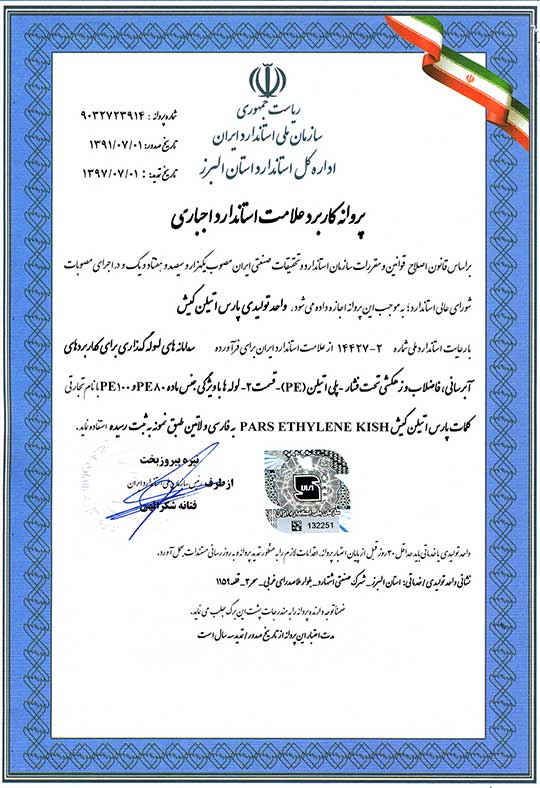 ریاست جمهوری
سازمان ملی استاندارد ایران
اداره کل استاندارد استان البرز
شماره پروانه : ۹۰۳۲۷۲۳۹۱۴
تاریخ صدور: ۱۳۹۱/۰۷/۰۱
تاریخ تمدید: : ۱۳۹۷/۰۷/۰۱
پروانه کاربرد علامت استاندارد اجباری
براساس قانون اصلاح قوانین و مقررات سازمان استاندارد و تحقیقات صنعتی ایران مصوب یکهزار و سیصد و هفتاد و یک و در اجرای مصوبات
شورای عالی استاندارد ؛ به موجب این پروانه اجازه داده می شود، واحد تولیدی پارس اتیلن کیش
با رعایت استاندارد ملی شماره ۲-۱۴۴۲۷ از علامت استاندارد ایران برای فرآورده سامانه های لوله گذاری برای کاربردهای
آبرسانی، فاضلاب و زهکشی تحت فشار -پلی اتیلن (PE)-قسمت ۲- لوله ها با ویژگی جنس ماده PE۸۰ و PE۱۰۰ با نام تجارتی
کلمات پارس اتیلن کیش PARS ETHYLENE KISH به فارسی و لاتین طبق نمونه به ثبت رسیده استفاده نماید.
نیره پیروزبخت
رئیس سازمان ملی استاندارد ایران
از طرف
فتانه شکرالهی
132251
واحد تولیدی یا خدماتی باید حداقل ۳۰ روز قبل از پایان اعتبار پروانه، اقدامات لازم را به منظور تمدید پروانه و به روز رسانی مستندات بعمل آورد.
نشانی واحد تولیدی / خدماتی: استان البرز_ شهرک صنعتی اشتهارد_ بلوار ملاصدرای غربی_ سحر۳_ قطعه ۱۱۵۹
ضمناً توجه دارنده پروانه را به مندرجات پشت این برگ جلب می نماید.
مدت اعتبار این پروانه از تاریخ صدور / تمدید سه سال است